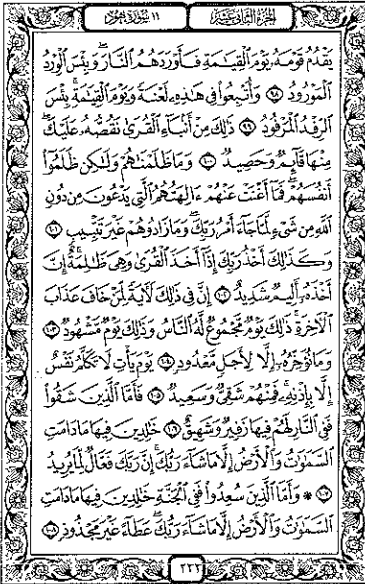 الجزء الثاني عشر
١١ سورة هود
يَقْدُمُ قَوْمَهُۥ يَوْمَ ٱلْقِيَٰمَةِ فَأَوْرَدَهُمُ ٱلنَّارَ ۖ وَبِئْسَ ٱلْوِرْدُ
ٱلْمَوْرُودُ ٩٨ وَأُتْبِعُوا۟ فِى هَٰذِهِۦ لَعْنَةً وَيَوْمَ ٱلْقِيَٰمَةِ ۚ بِئْسَ
ٱلرِّفْدُ ٱلْمَرْفُودُ ٩٩ ذَٰلِكَ مِنْ أَنۢبَآءِ ٱلْقُرَىٰ نَقُصُّهُۥ عَلَيْكَ ۖ
مِنْهَا قَآئِمٌ وَحَصِيدٌ ١٠٠ وَمَا ظَلَمْنَٰهُمْ وَلَٰكِن ظَلَمُوٓا۟
أَنفُسَهُمْ ۖ فَمَآ أَغْنَتْ عَنْهُمْ ءَالِهَتُهُمُ ٱلَّتِى يَدْعُونَ مِن دُونِ
ٱللَّهِ مِن شَىْءٍ لَّمَّا جَآءَ أَمْرُ رَبِّكَ ۖ وَمَا زَادُوهُمْ غَيْرَ تَتْبِيبٍ ١٠١
وَكَذَٰلِكَ أَخْذُ رَبِّكَ إِذَآ أَخَذَ ٱلْقُرَىٰ وَهِىَ ظَٰلِمَةٌ ۚ إِنَّ
أَخْذَهُۥٓ أَلِيمٌ شَدِيدٌ ١٠٢ إِنَّ فِى ذَٰلِكَ لَءَايَةً لِّمَنْ خَافَ عَذَابَ
ٱلْءَاخِرَةِ ۚ ذَٰلِكَ يَوْمٌ مَّجْمُوعٌ لَّهُ ٱلنَّاسُ وَذَٰلِكَ يَوْمٌ مَّشْهُودٌ ١٠٣
وَمَا نُؤَخِّرُهُۥٓ إِلَّا لِأَجَلٍ مَّعْدُودٍ ١٠٤ يَوْمَ يَأْتِ لَا تَكَلَّمُ نَفْسٌ
إِلَّا بِإِذْنِهِۦ ۚ فَمِنْهُمْ شَقِىٌّ وَسَعِيدٌ ١٠٥ فَأَمَّا ٱلَّذِينَ شَقُوا۟
فَفِى ٱلنَّارِ لَهُمْ فِيهَا زَفِيرٌ وَشَهِيقٌ ١٠٦ خَٰلِدِينَ فِيهَا مَا دَامَتِ
ٱلسَّمَٰوَٰتُ وَٱلْأَرْضُ إِلَّا مَا شَآءَ رَبُّكَ ۚ إِنَّ رَبَّكَ فَعَّالٌ لِّمَا يُرِيدُ
١٠٧ * وَأَمَّا ٱلَّذِينَ سُعِدُوا۟ فَفِى ٱلْجَنَّةِ خَٰلِدِينَ فِيهَا مَا دَامَتِ
ٱلسَّمَٰوَٰتُ وَٱلْأَرْضُ إِلَّا مَا شَآءَ رَبُّكَ ۖ عَطَآءً غَيْرَ مَجْذُوذٍ ١٠٨